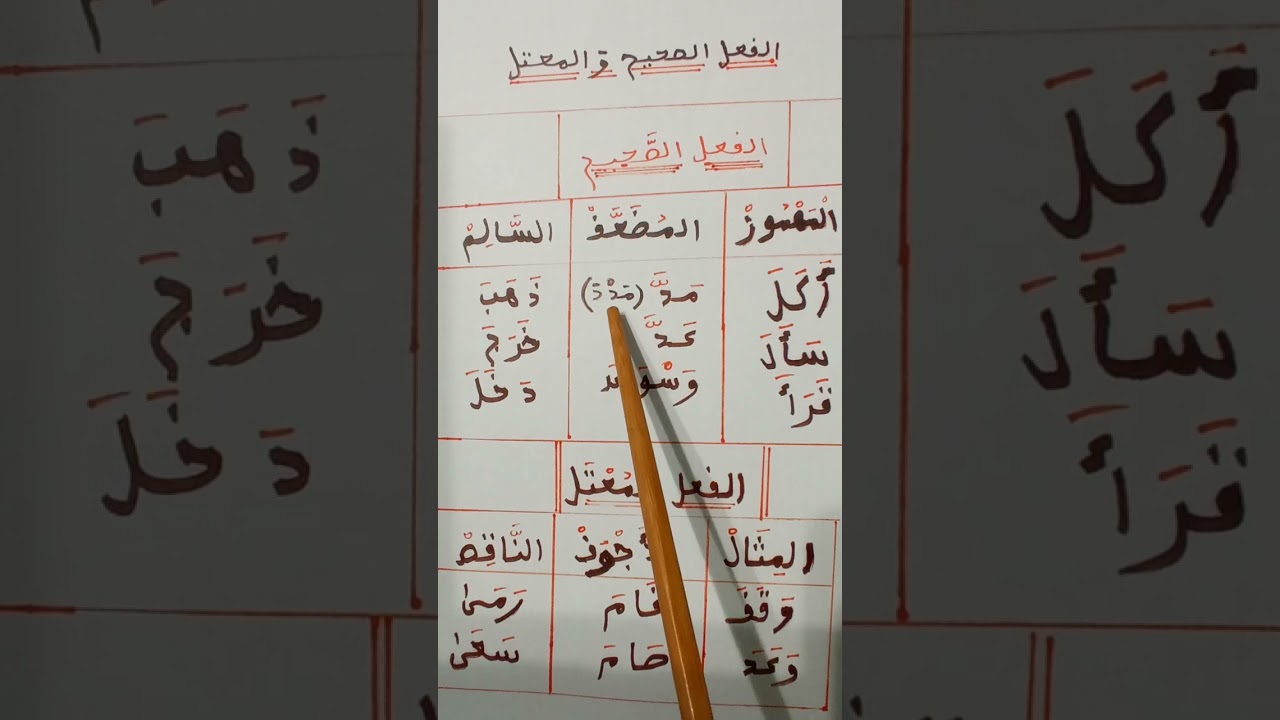 الفعل الصحيح و المعتل
الفعل الصَّحِيح
الْمَهْمُوزْ المُضَعَّفْ السَّالِمْ
أَكَلَ مَدَّ (مَدْدَ) ذَهَبَ
سَأَلَ عَدَّ خَرَجَ
قَرَأَ دَخَلَ
الفعل
المِثَالْ النَّاقِصْ
وَقَفَ قَامَ رَمَىٰ
وَعَدَ صَامَ سَعَىٰ